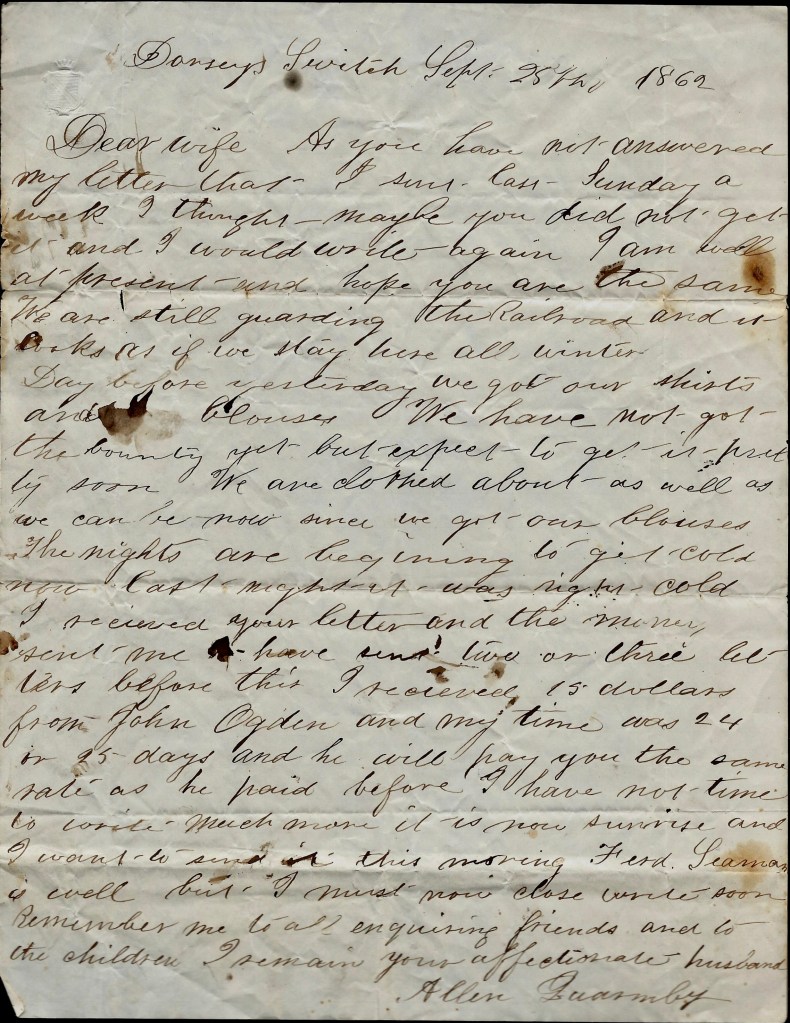 Dorseys Switch Sept. 25th, 1862
Dear wife As you have not answered
my letter that I sent last Sunday a
week I thought maybe you did not get
it and I would write again I am well
at present and hope you are the same
We are still guarding the Railroad and it
looks as if we stay here all winter
Day before yesterday we got our shirts
and blouses We have not got
the bounty yet but expect to get it pret
ty soon We are clothed about as well as
we can be now since we got our blouses
The nights are begining to get cold
now last night it was right cold
I recieved your letter and the money
sent me have sent two or three let
ters before this I recieved 15 dollars
from John Ogden and my time was 24
or 25 days and he will pay you the same
rate as he paid before I have not time
to write much more it is now sunrise and
I want to send it this moring Ferd. Seaman
is well but I must now close write soon
Remember me to all enquiring friends and to
the children I remain your affectionate husband
Allen Quarmby